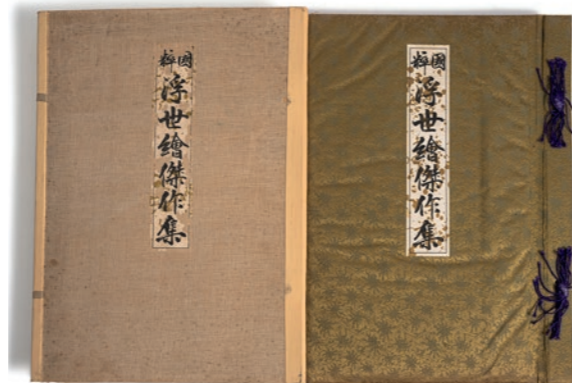 國粹
浮世繪傑作集
國粹
浮世繪傑作集